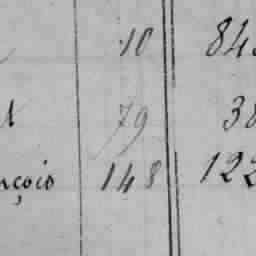 10 84
79 38
nçois 148 122